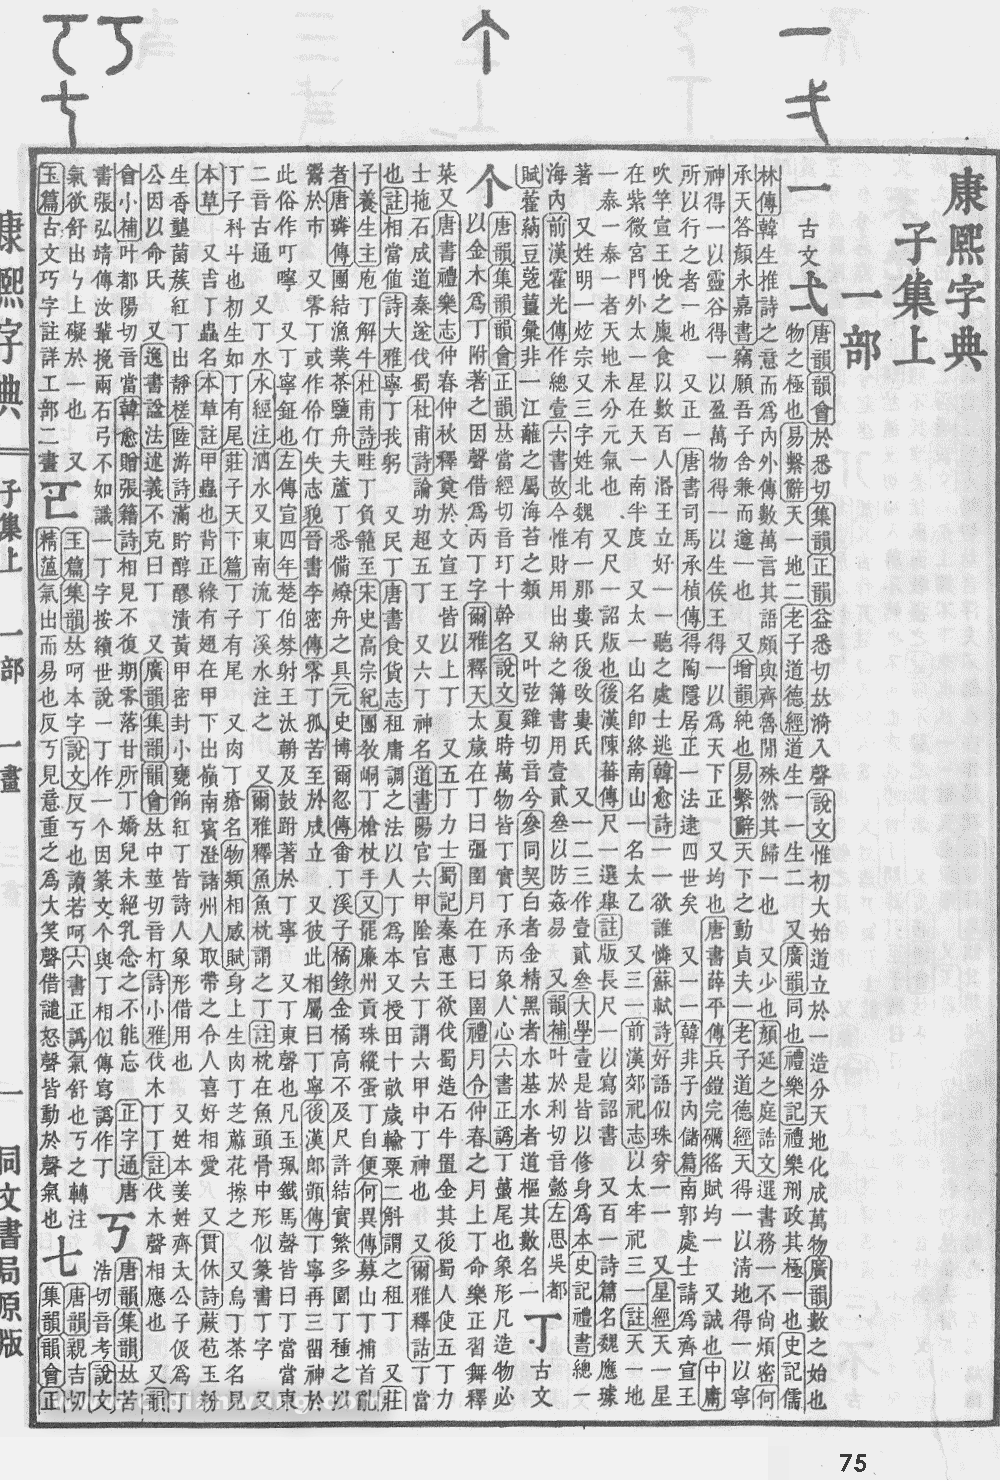 康熙字典
子集上
一部
一 古文弌
唐韻韻會於悉切集韻正韻益悉切𠀤漪入聲說文惟初大始道立於一造分天地化成萬物廣韻數之始也
物之極也易繫辭天一地二老子道德經道生一一生二 又廣韻同也禮樂記禮樂刑政其極一也史記儒
林傳韓生推詩之意而爲內外傳數萬言其語頗與齊魯閒殊然其歸一也 又少也顏延之庭誥文選書務一不尚煩密何
承天答顏永嘉書竊願吾子舍兼而遵一也 又增韻純也易繫辭天下之動貞夫一老子道德經天得一以淸地得一以寧
神得一以靈谷得一以盈萬物得一以生侯王得一以爲天下正 又均也唐書薛平傳兵鎧完礪徭賦均一 又誠也中庸
所以行之者一也 又正一唐書司馬承楨傳得陶隱居正一法逮四世矣 又一一韓非子內儲篇南郭處士請爲齊宣王
吹竽宣王悅之廩食以數百人湣王立好一一聽之處士逃韓愈詩一一欲誰憐蘇軾詩好語似珠穿一一 又星經天一星
在紫微宮門外太一星在天一南半度 又太一山名卽終南山一名太乙 又三一前漢郊祀志以太牢祀三一註天一地
一泰一泰一者天地未分元氣也 又尺一詔版也後漢陳蕃傳尺一選舉註版長尺一以寫詔書 又百一詩篇名魏應璩
著 又姓明一炫宗又三字姓北魏有一那婁氏後攺婁氏 又一二三作壹貳叄大學壹是皆以修身爲本史記禮書總一
海內前漢霍光傳作總壹六書故今惟財用出納之簿書用壹貳叄以防姦易 又韻補叶於利切音懿左思吳都
賦藿蒳豆蔻薑彙非一江蘺之屬海苔之類 又叶弦雞切音兮參同契白者金精黑者水基水者道樞其數名一
丁 古文
个
唐韻集韻韻會正韻𠀤當經切音玎十幹名說文夏時萬物皆丁實丁承丙象人心六書正譌丁蠆尾也象形凡造物必
以金木爲丁附著之因聲借爲丙丁字爾雅釋天太歲在丁曰彊圉月在丁曰圉禮月令仲春之月上丁命樂正習舞釋
菜又唐書禮樂志仲春仲秋釋奠於文宣王皆以上丁 又五丁力士蜀記秦惠王欲伐蜀造石牛置金其後蜀人使五丁力
士拖石成道秦遂伐蜀杜甫詩論功超五丁 又六丁神名道書陽官六甲陰官六丁謂六甲中丁神也 又爾雅釋詁丁當
也註相當值詩大雅寧丁我躬 又民丁唐書食貨志租庸調之法以人丁爲本又授田十畝歲輸粟二斛謂之租丁 又莊
子養生主庖丁解牛杜甫詩畦丁負籠至宋史高宗紀團敎峒丁槍杖手又罷廉州貢珠縱蛋丁自便何異傳募山丁捕首亂
者唐璘傳團結漁業茶鹽舟夫蘆丁悉備繚舟之具元史博爾忽傳畬丁溪子橘錄金橘高不及尺許結實繁多園丁種之以
鬻於市 又零丁或作伶仃失志貌晉書李密傳零丁孤苦至於成立 又彼此相屬曰丁寧後漢郎顗傳丁寧再三留神於
此俗作叮嚀 又丁寧鉦也左傳宣四年楚伯棼射王汰輈及鼓跗著於丁寧 又丁東聲也凡玉珮鐵馬聲皆曰丁當當東
二音古通 又丁水水經注泗水又東南流丁溪水注之 又爾雅釋魚魚枕謂之丁註枕在魚頭骨中形似篆書丁字 又
丁子科斗也初生如丁有尾莊子天下篇丁子有尾 又肉丁瘡名物類相感賦身上生肉丁芝蔴花擦之 又烏丁茶名見
本草 又吉丁蟲名本草註甲蟲也背正綠有翅在甲下出嶺南賓澄諸州人取帶之令人喜好相愛 又貫休詩蕨苞玉粉
生香壟菌蔟紅丁出靜槎陸游詩滿貯醇醪漬黃甲密封小甕餉紅丁皆詩人象形借用也 又姓本姜姓齊太公子伋爲丁
公因以命氏 又逸書諡法述義不克曰丁 又廣韻集韻韻會𠀤中莖切音朾詩小雅伐木丁丁註伐木聲相應也 又韻
會小補叶都陽切音當韓愈贈張籍詩相見不復期零落甘所丁嬌兒未絕乳念之不能忘 正字通唐
書張弘靖傳汝輩挽兩石弓不如識一丁字按續世說一丁作一个因篆文个與丁相似傳寫譌作丁
丂
唐韻集韻𠀤苦
浩切音考說文
氣欲舒出ㄣ上礙於一也 又
玉篇古文巧字註詳工部二畫
𠀀
玉篇集韻𠀤呵本字說文反丂也讀若呵六書正譌氣舒也丂之轉注
精薀氣出而易也反丂見意重之爲大笑聲借譴怒聲皆動於聲氣也
七
唐韻親吉切
集韻韻會正
康熙字典 子集上 一部 一畫 一 同文書局原版
75